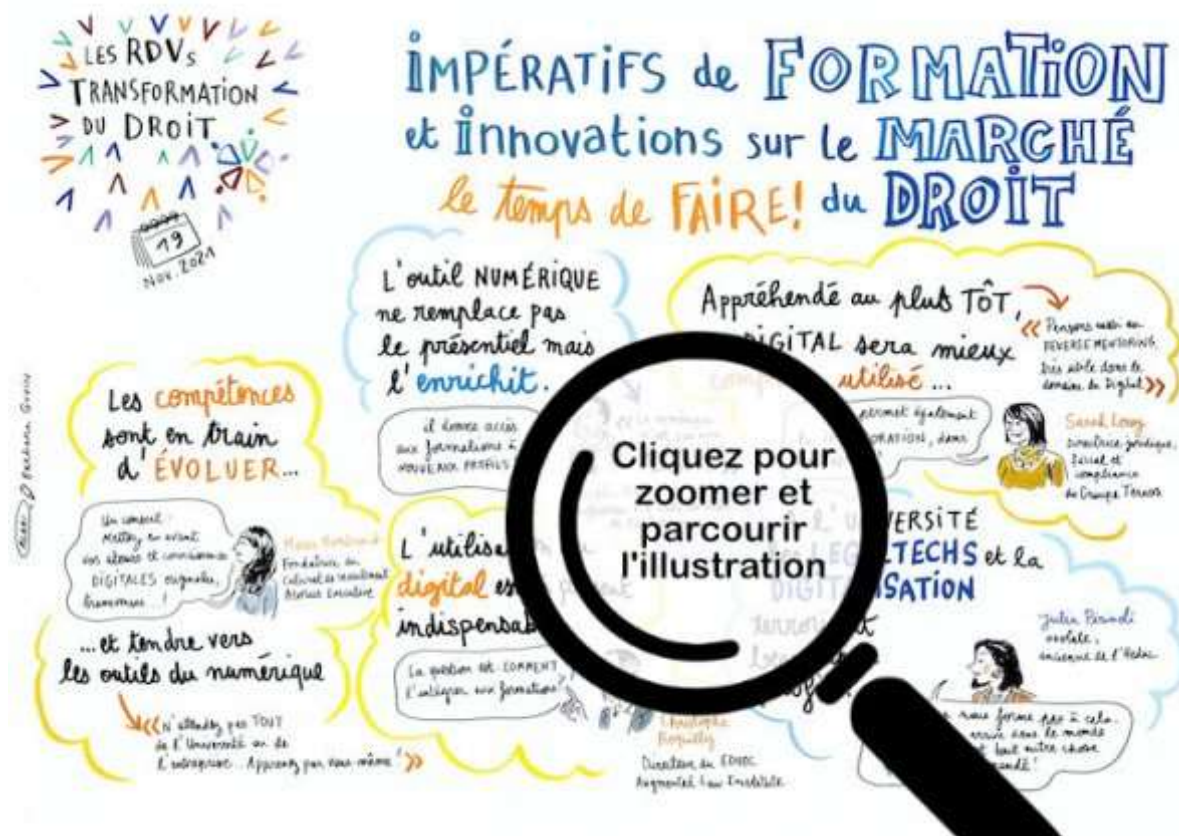 LES RDVs
TRANSFORMATION
DU DROIT
19
Nov. 2021
iMPÉRATiFS de FORMATiON
et innovations sur le MARCHÉ
le temps de FAIRE! du DROiT
L'outil NUMÉRIQUE
ne remplace pas
le présentiel mais
l'enrichit.
il donne accès
aux formations à
NOUVEAUX PROFILS
Appréhendé au plus TÔT,
DIGITAL sera mieux
utilisé...
« Pensons aussi au
REVERSE MENTORING,
très utile dans le
domaine du Digital »
permet également
dans
Sarah
Directrice juridique,
fiscal et
compliance
du Groupe
Les compétences
sont en train
d'ÉVOLUER...
Un conseil :
Mettez en avant
vos atouts et connaissances
DIGITALES originales,
Fondatrice du
Cabinet de recrutement
...et tendre vers
les outils du numérique
« N'attendez pas TOUT
de l'Université ou de
l'entreprise. Apprenez par vous même ! »
L'utilisation
digital est
indispensable
La question est COMMENT
l'intégrer aux formations
Christophe
Roquilly
Directeur du EDHEC
Augmented Law Institute
Cliquez pour
zoomer et
parcourir
l'illustration
L'UNIVERSITÉ
LEGALTECHS et la
DIGITALISATION
Julia
avocate,
ancienne de l'Hedac
nous forme pas à cela.
arrive dans le monde
tout autre chose